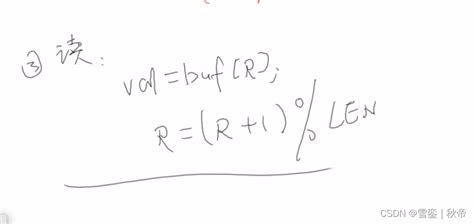 ③ 读:
val=buf[R];
R=(R+1)%LEN
CSDN @雪銮 | 秋帝